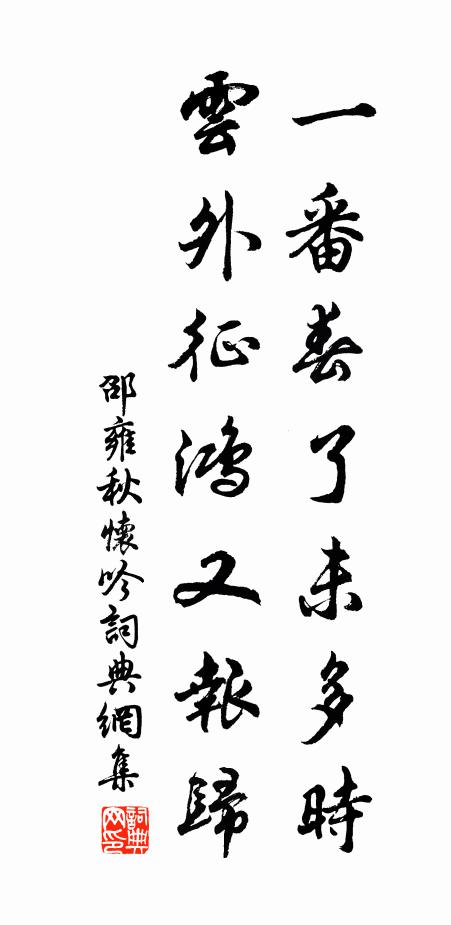 一番春了未多時
雲外征鴻又報歸
邵雍秋懷吟詞典網集
詞典網印